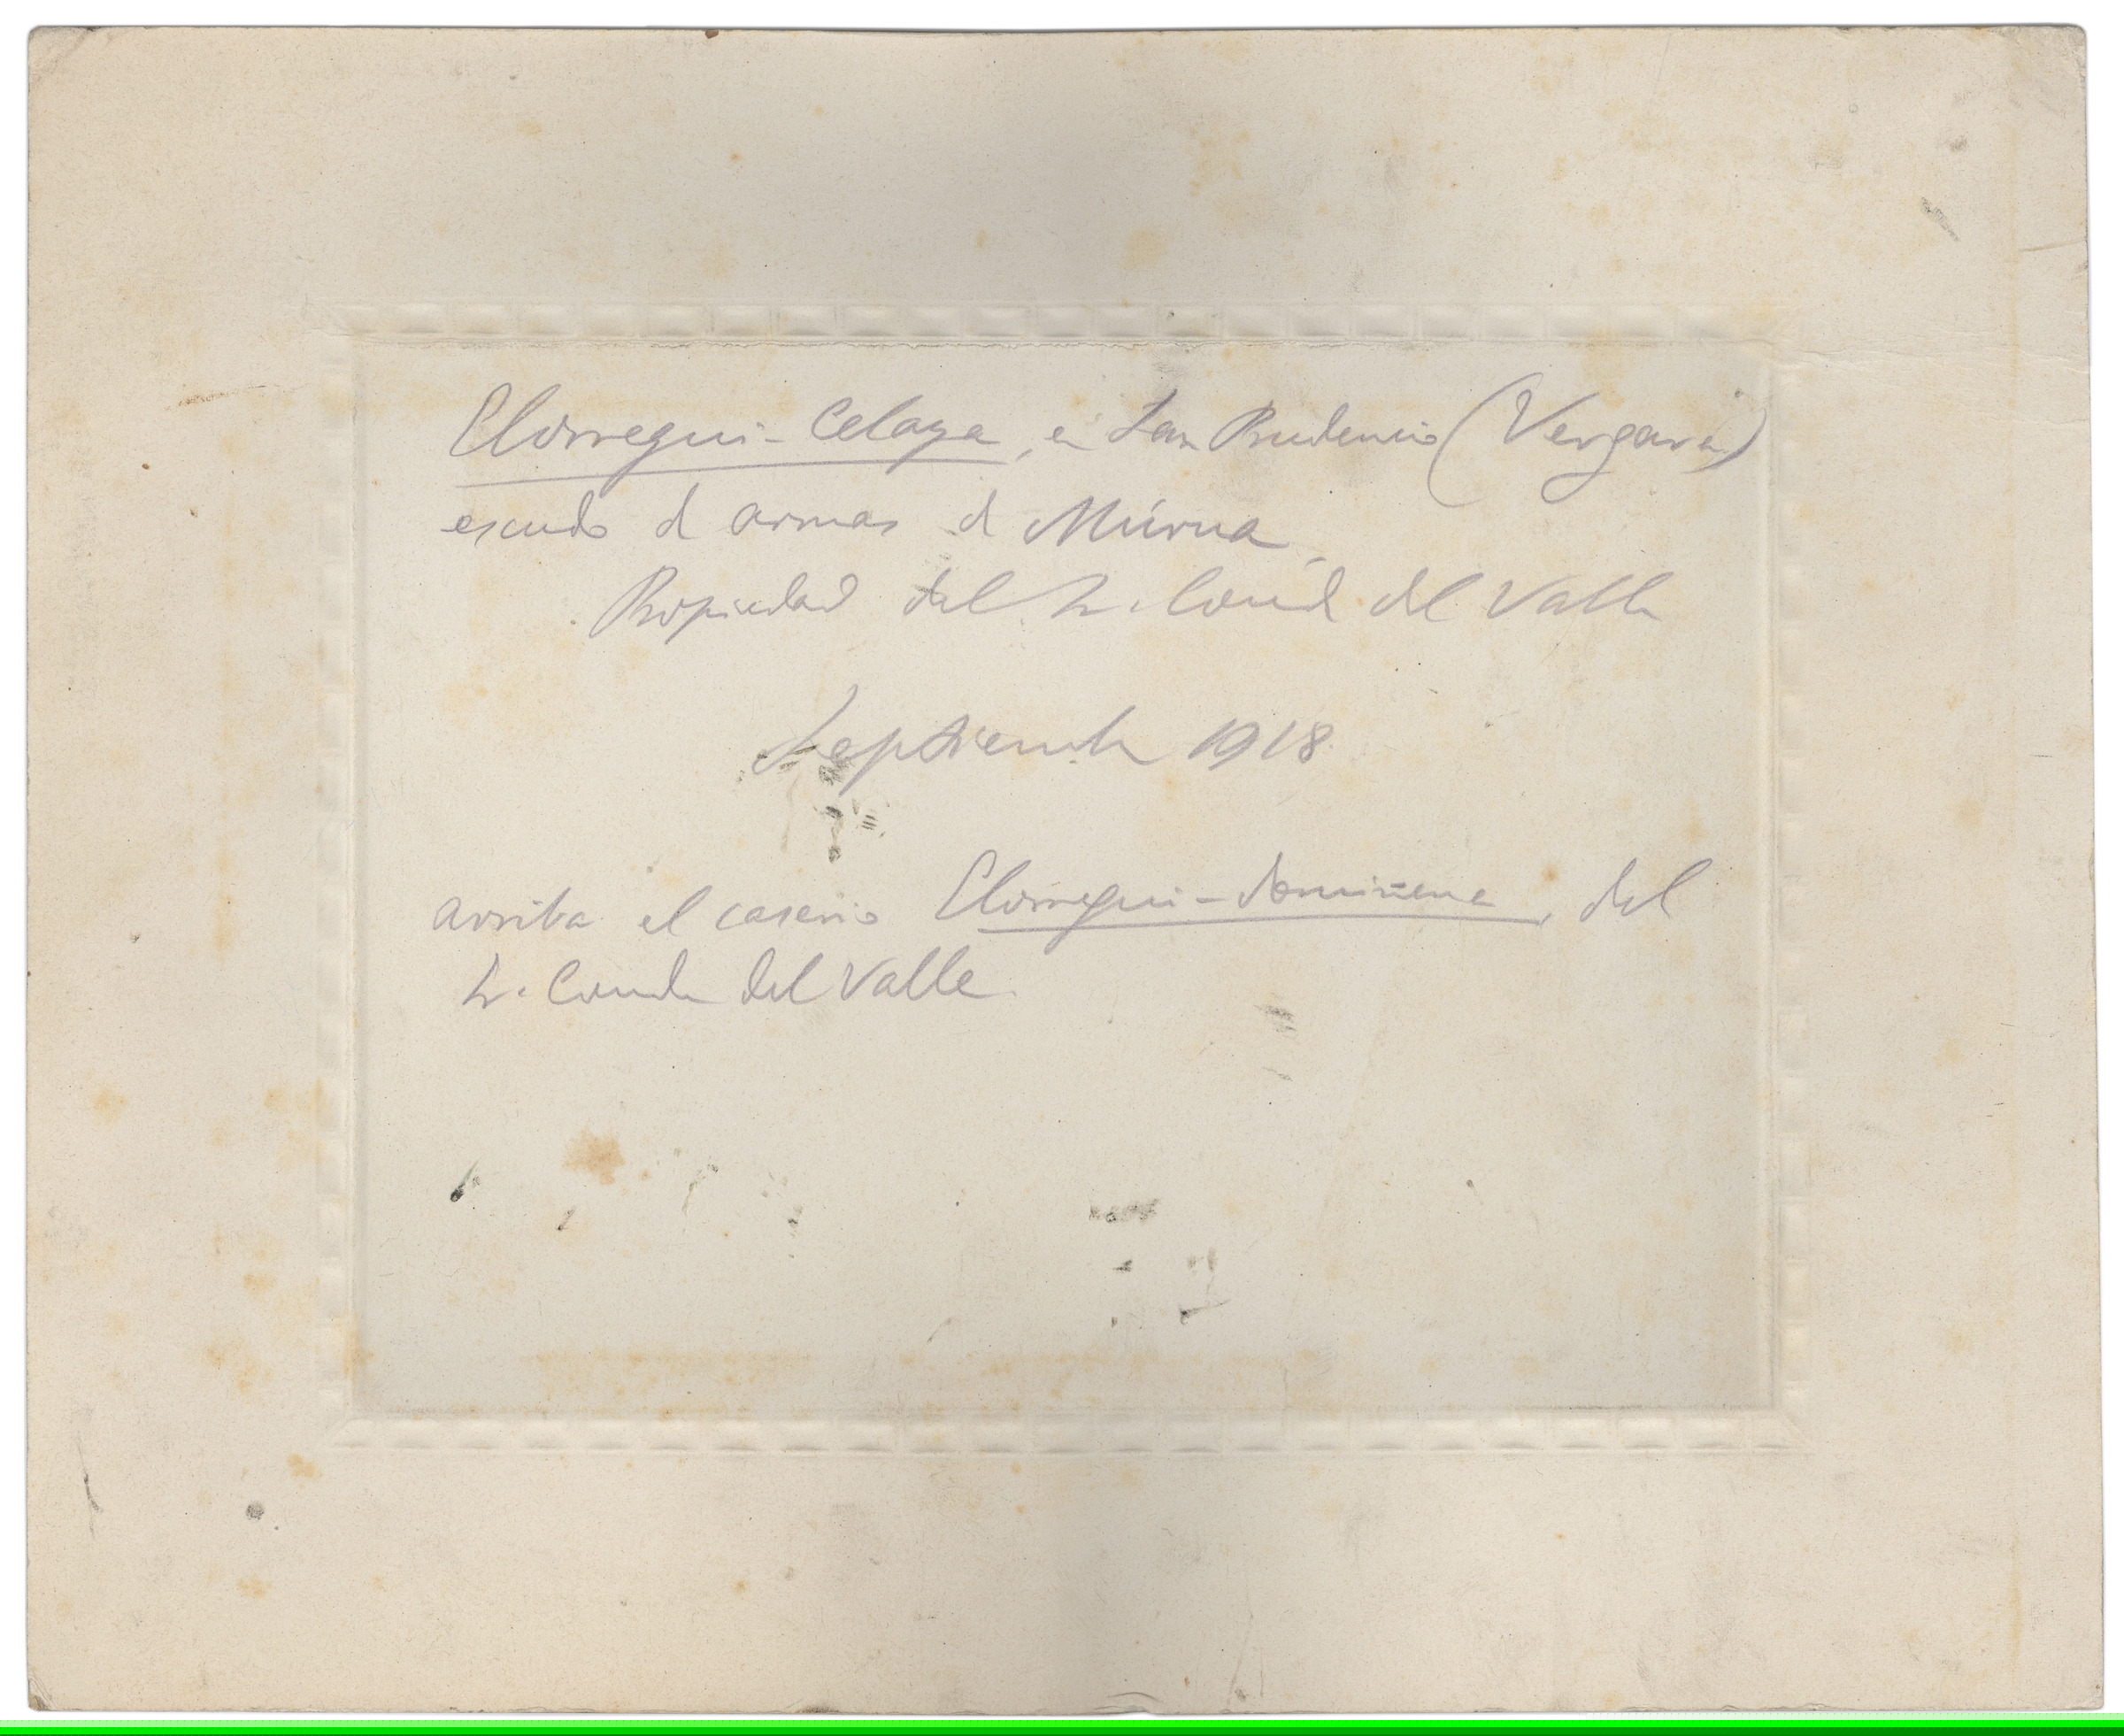 Elorregui-Celaya, en San Prudencio (Vergara)
escudo de armas de Múrua.
Propiedad del Sr. Conde del Valle
Septiembre 1918
arriba el caserio Elorregui-domiñene, del
Sr. Conde del Valle.